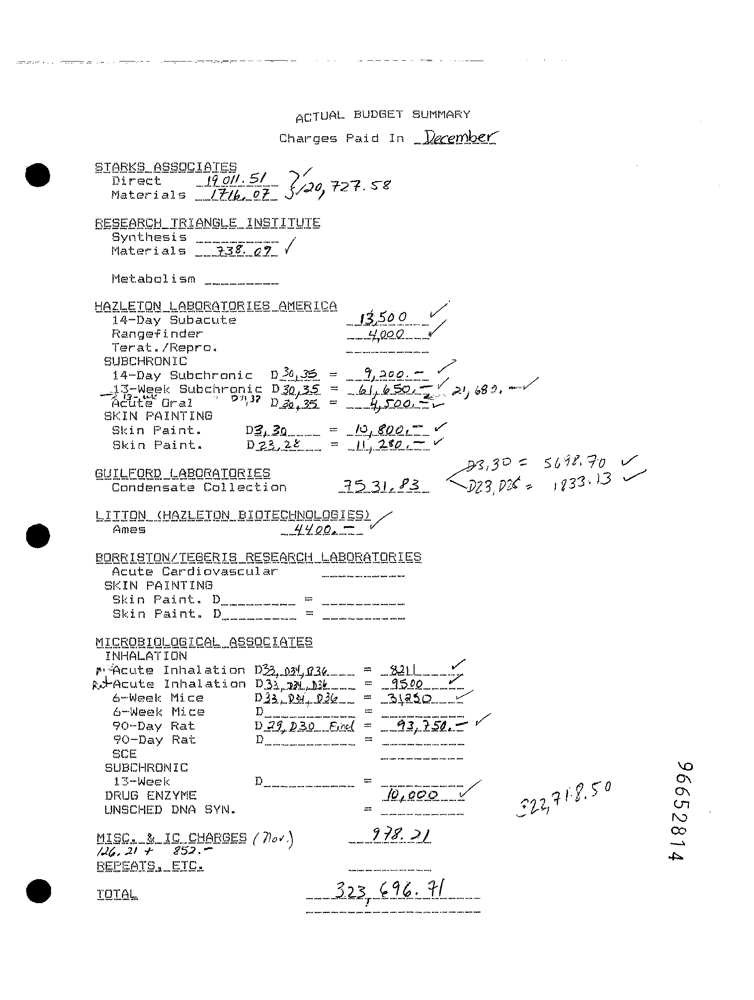 ACTUAL BUDGET SUMMARY
Charges Paid In December
STARKS ASSOCIATES
Direct 19 011.51
Materials 1716.07 20,727.58
RESEARCH TRIANGLE INSTITUTE
Synthesis
Materials 738.09 ✓
Metabolism
HAZLETON LABORATORIES AMERICA
14-Day Subacute 13,500 ✓
Rangefinder 4,000 ✓
Terat./Repro.
SUBCHRONIC
14-Day Subchronic D 30,35 = 9,200.- ✓
13-Week Subchronic D 30,35 = 61,650.- ✓ 21,680.- ✓
Acute Oral D 30,35 = 4,500.- ✓
SKIN PAINTING
Skin Paint. D3,30 = 10,800.- ✓
Skin Paint. D23,28 = 11,280.- ✓
D3,30 = 5698.70 ✓
GUILFORD LABORATORIES
Condensate Collection 7531.83 D23,D28 = 1833.13 ✓
LITTON (HAZLETON BIOTECHNOLOGIES)
Ames 4400.- ✓
BORRISTON/TEGERIS RESEARCH LABORATORIES
Acute Cardiovascular
SKIN PAINTING
Skin Paint. D =
Skin Paint. D =
MICROBIOLOGICAL ASSOCIATES
INHALATION
Acute Inhalation D33, D34, D36 = 8211 ✓
Rat Acute Inhalation D33, D34, D36 = 9500 ✓
6-Week Mice D33, D34, D36 = 31,250 ✓
6-Week Mice D =
90-Day Rat D29, D30 Final = 93,750.- ✓
90-Day Rat D =
SCE
SUBCHRONIC
13-Week D =
DRUG ENZYME 10,000 ✓
UNSCHED DNA SYN. =
322,718.50
MISC. & IC CHARGES (Nov.) 978.21
126.21 + 852.-
REPEATS, ETC.
TOTAL 323,696.71
96652814